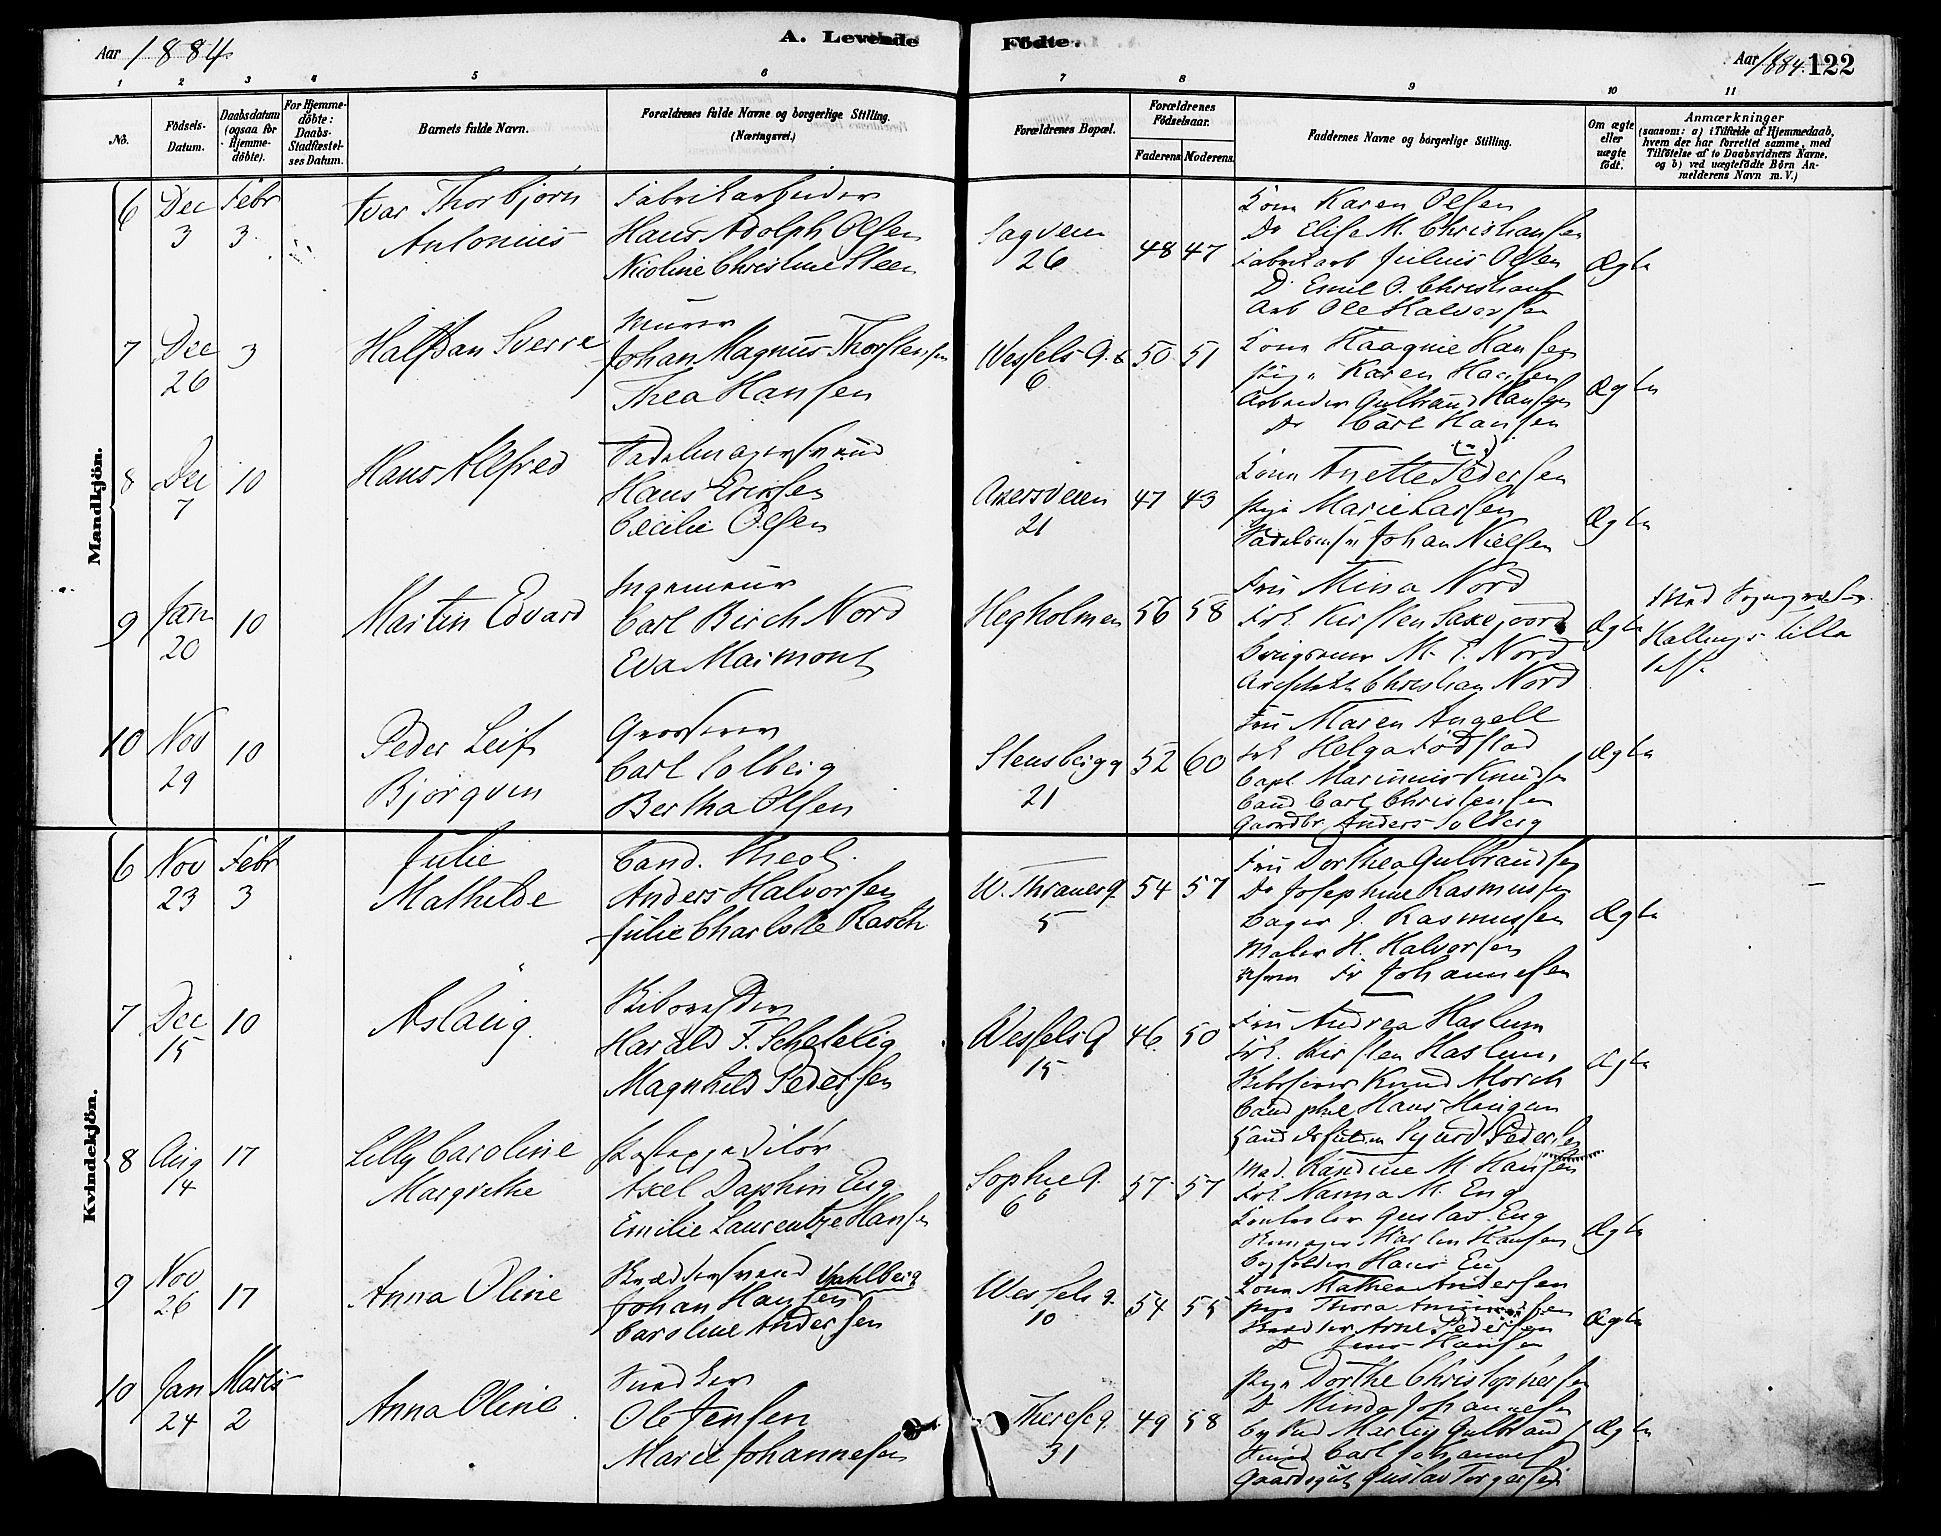 Aar 1884.
A. Levende Födte.
Aar 1884. 122
1 2 3 4 5 6 7 8 9 10 11
No.
Födsels-Datum.
Daabsdatum (ogsaa for Hjemme-döbte).
For Hjemme-döbte: Daabs-Stadfæstel-ses Datum.
Barnets fulde Navn.
Forældrenes fulde Navne og borgerlige Stilling. (Næringsvei.)
Forældrenes Bopæl.
Forældrenes Födselsaar.
Faderens. Moderens.
Faddernes Navne og borgerlige Stilling.
Om ægte eller uægte födt.
Anmærkninger
(saasom: a) i Tilfælde af Hjemmedaab,
hvem der har forrettet samme, med
Tilföielse af to Daabsvidners Navne,
og b) ved uægtefödte Börn An-
melderens Navn m. V.)
Mandkjön.
6 Dec 3 Febr 3.
Ivar Thorbjørn
Antonius
Fabrikarbeider
Hans Adolph Olsen
Nicoline Christine Steen
Sagveien
26
48 47
Kone Karen Olsen
Do Elise M. Christiansen
Fabrikarb Julius Olsen
D. Emil O. Christians
Arb Ole Halvorsen
Ægte
7 Dec 26 3
Halfdan Sverre
Murer
Johan Magnus Thorstensen
Thea Hansen
Wessels G.
6
50 51
Kone Haagine Hansen
Pige Karen Hansen
Arbeider Gulbrand Hansen
Do Carl Hansen
Ægte
8 Dec 7 10
Hans Alfred
Sadelmagersvend
Hans Ericsen
Cecilie Olsen
Akersveien
21
47 43
Kone Anette Pedersen
Pige Marie Larsen
Johan Nielsen
Ægte
9 Jan 20 10
Martin Edvard
Ingenieur
Carl Birch Nord
Eva Maimont
Hegholmen
56 58
Fru Mina Nord
Frk Kirsten Saxegaard
M. E. Nord
Christian Nord
Ægte
Med Sognepræst
Hallings Tilla
telse.
10 Nov 29 10
Peder Leif
Bjørgven
Grosserer
Carl Solberg
Bertha Olsen
Stensbergg
21
52 60
Fru Maren Angell
Frk Helga Fødstad
Capt Marinius Knudsen
Cand Carl Christensen
Gaardbr. Anders Solberg
Ægte
Kvindekjön.
6 Nov 23 Febr 3
Julie
Mathilde
Cand. theol.
Anders Halvorsen
Julie Charlotte Rasch
W. Thranesg.
5
54 57
Fru Dorthea Gulbrandsen
Do Josephine Rasmussen
Bager J. Rasmussen
Maler H. Halvorsen
Fr Johannesen
Ægte
7 Dec 15 10
Aslaug.
Harald F. Schetelig
Magnhild Pedersen
Wessels G
15
46. 50
Fru Andrea Haslum
Frk. Kirsten Haslum,
Knud Morch
Cand phil Hans Haugen
Sigurd Pedersen
Ægte
8 Aug 14 17
Lilly Caroline
Margrethe
Postexpeditør
Axel Daphin Eng
Emilie Laurentze Hansen
Sophie G.
6 b
57 57
Mad. Randine M Hansen
Frk. Nanna M. Eng
Kontrolør Gustav Eng
Martin Hansen
Hans Eng
Ægte
9 Nov 26 17
Anna Oline
Skræddersvend Vahlberg
Johan Hansen
Caroline Andersen
Wessels g.
10
54 55
Kone Mathea Andersen
Pige Thora
Skrædder Arne Pedersen
D Jens Hansen
Ægte
10 Jan 24 Marts 2
Anna Oline
Snedker
Ole Jensen
Marie Johannesen
Theresesg
31
49 58
Pige Dorthe Christophersen
D Minda Johannesen
Martin Gulbrands
Carl Johannes
Gaardsgut Gustav Torgersen
Ægte